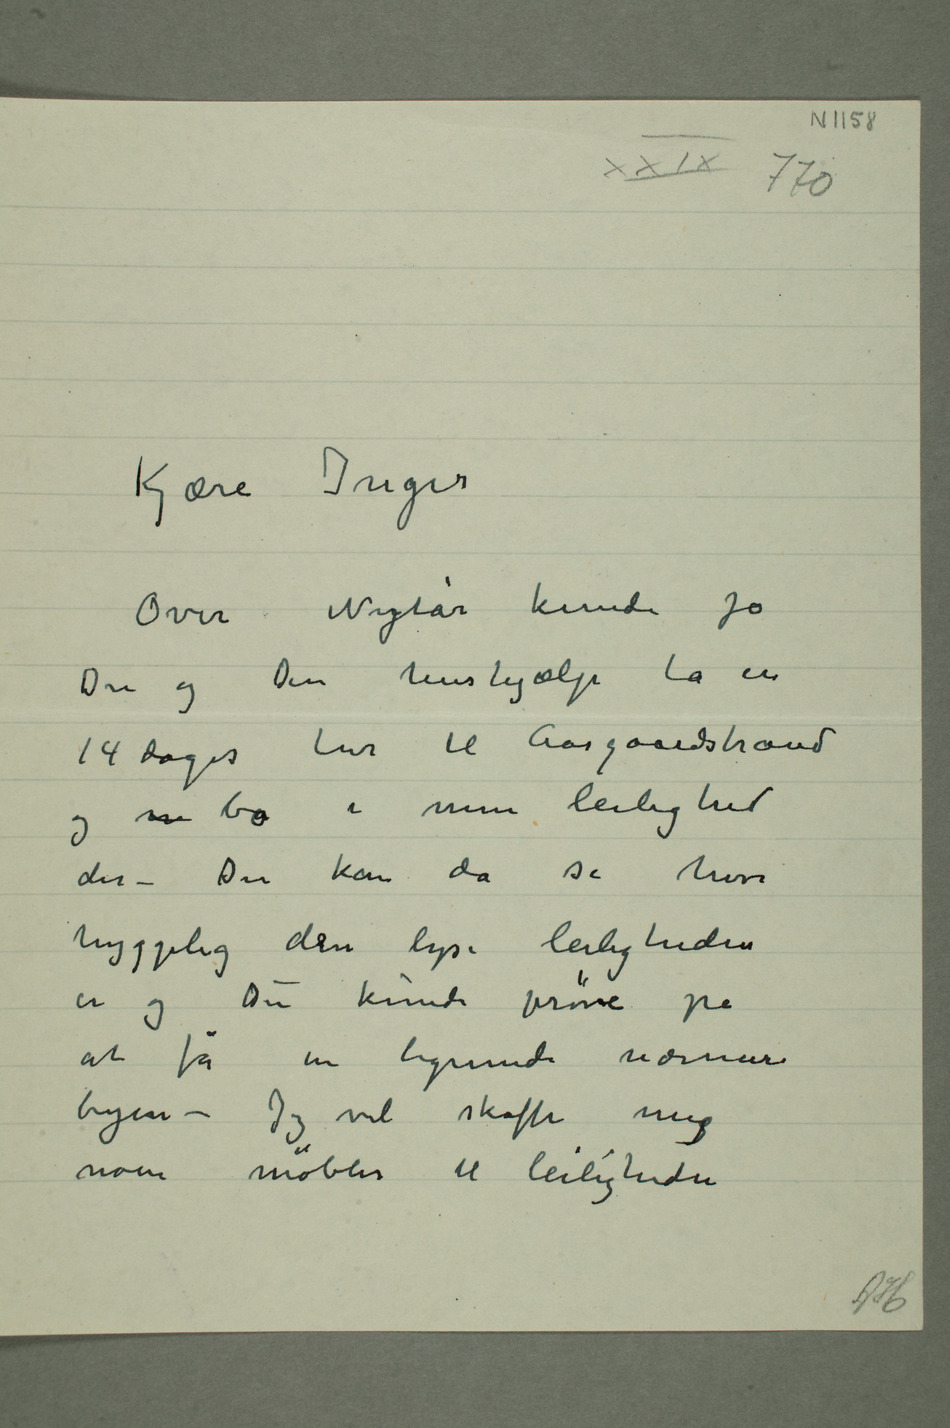 N 1158
XXIX 770
Kjære Inger
Over Nytår kunde jo
Du og Din hushjælp ta en
14 dages tur til Aasgaardstrand
og bo i min leilighed
der – Du kan da se hvor
hyggelig den lyse leiligheden
er og Du kunde pröve på
at få en lignende nærmere
byen – Jeg vil skaffe mig
noen möbler til leiligheden